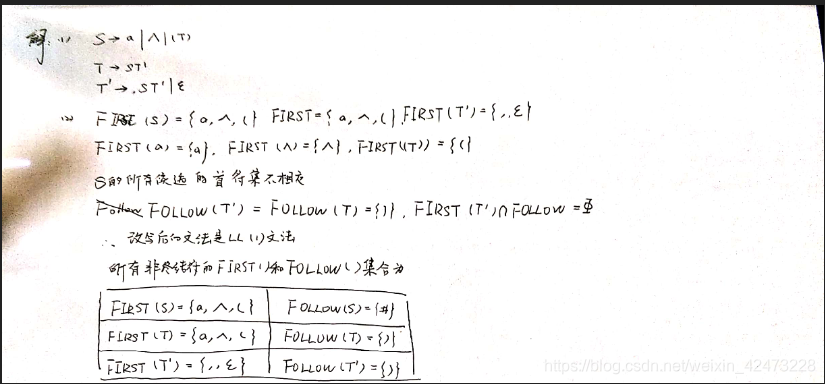 解: (1) S → a | ∧ | (T)
T → ST'
T' → ,ST' | ε
(2) FIRST(S) = {a, ∧, (} FIRST = {a, ∧, (} FIRST(T') = {,, ε}
FIRST(a) = {a}, FIRST(∧) = {∧}, FIRST((T)) = {(}
S的所有候选的首符集不相交
FOLLOW(T') = FOLLOW(T) = {)}, FIRST(T') ∩ FOLLOW = Φ
∴ 改写后的文法是LL(1)文法
所有非终结符的FIRST()和FOLLOW()集合为
FIRST(S) = {a, ∧, (} FOLLOW(S) = {#}
FIRST(T) = {a, ∧, (} FOLLOW(T) = {)}
FIRST(T') = {,, ε} FOLLOW(T') = {)}
https://blog.csdn.net/weixin_42473228